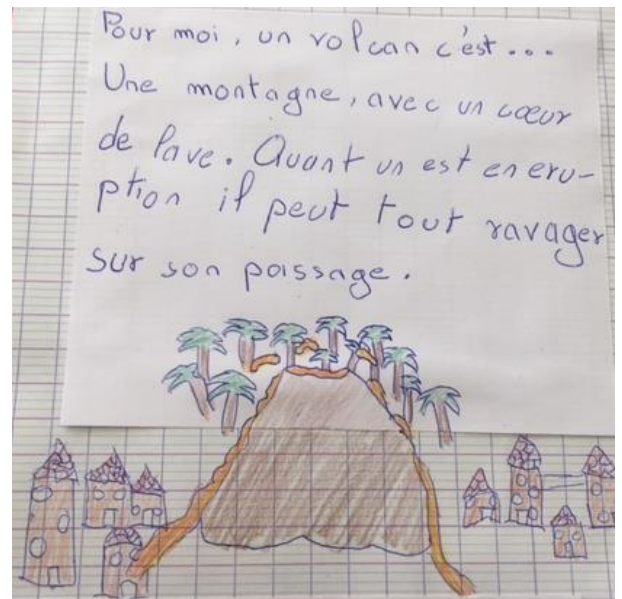 Pour moi, un volcan c'est...
Une montagne, avec un cœur
de lave. Quant un est en eru-
ption il peut tout ravager
sur son passage.